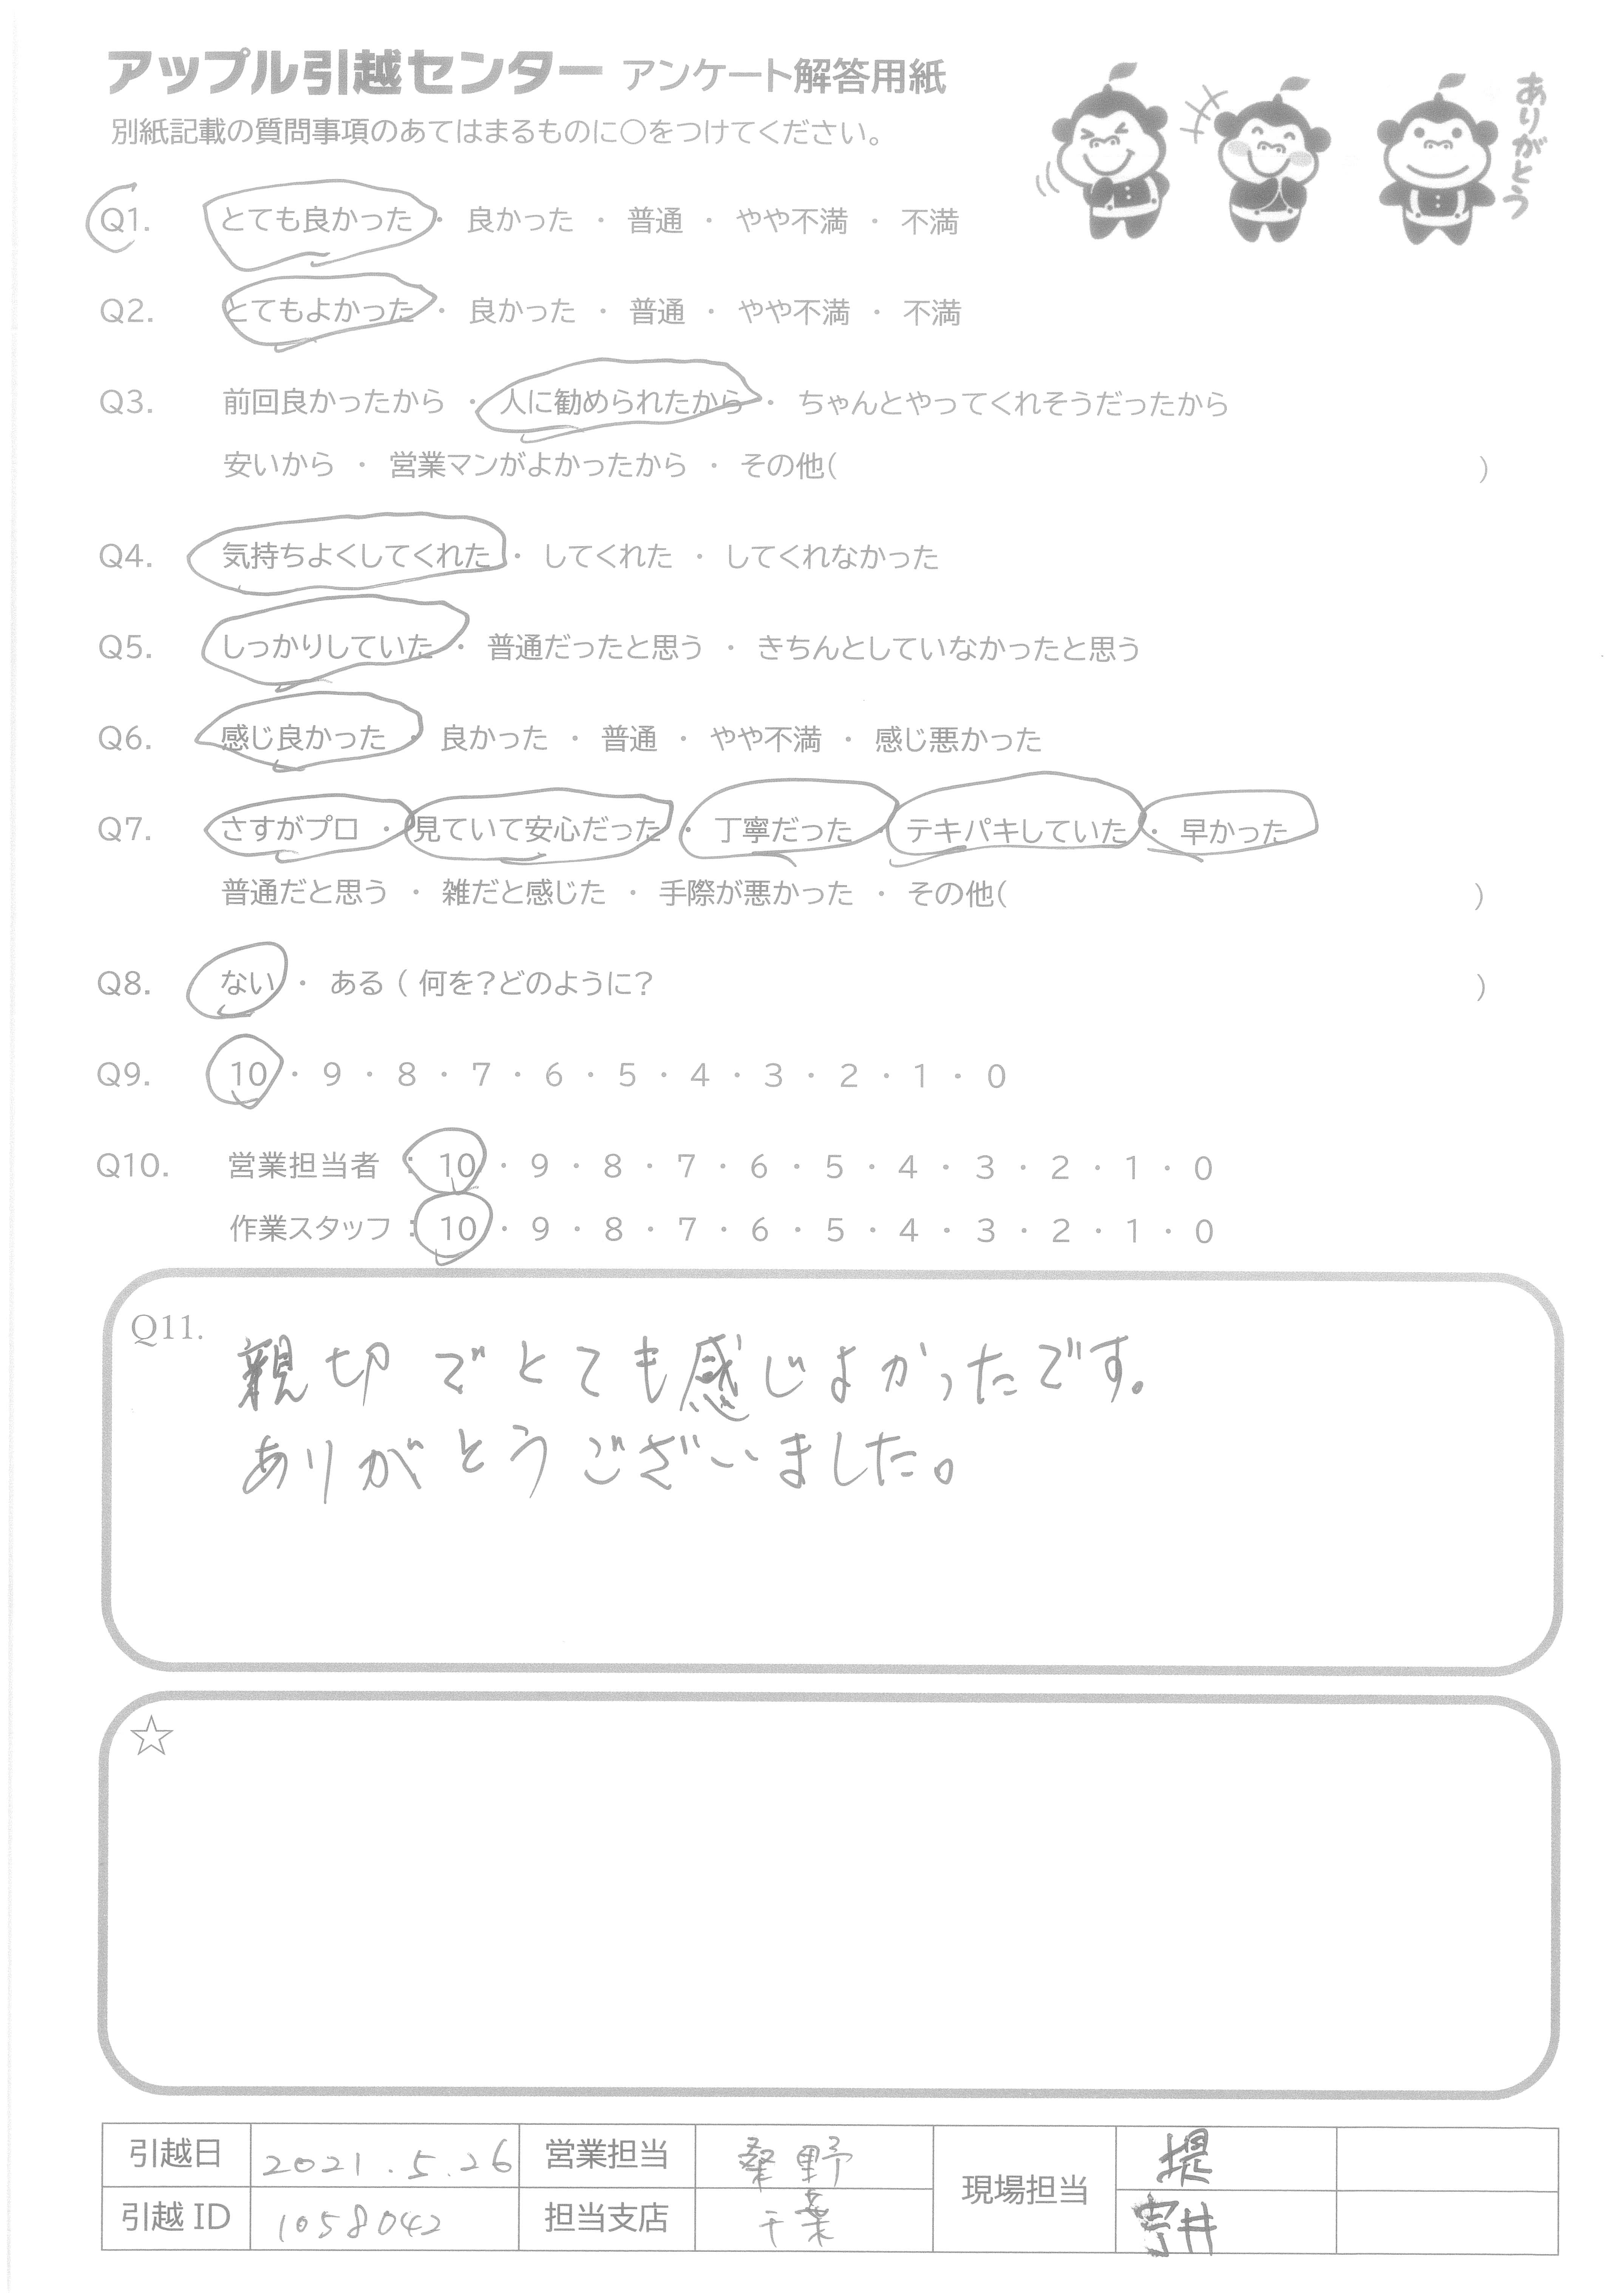 アップル引越センター アンケート解答用紙
別紙記載の質問事項のあてはまるものに○をつけてください。
ありがとう
Q1. とても良かった ・ 良かった ・ 普通 ・ やや不満 ・ 不満
Q2. とてもよかった ・ 良かった ・ 普通 ・ やや不満 ・ 不満
Q3. 前回良かったから ・ 人に勧められたから ・ ちゃんとやってくれそうだったから
安いから ・ 営業マンがよかったから ・ その他( )
Q4. 気持ちよくしてくれた ・ してくれた ・ してくれなかった
Q5. しっかりしていた ・ 普通だったと思う ・ きちんとしていなかったと思う
Q6. 感じ良かった ・ 良かった ・ 普通 ・ やや不満 ・ 感じ悪かった
Q7. さすがプロ ・ 見ていて安心だった ・ 丁寧だった ・ テキパキしていた ・ 早かった
普通だと思う ・ 雑だと感じた ・ 手際が悪かった ・ その他( )
Q8. ない ・ ある ( 何を?どのように? )
Q9. 10 ・ 9 ・ 8 ・ 7 ・ 6 ・ 5 ・ 4 ・ 3 ・ 2 ・ 1 ・ 0
Q10. 営業担当者 : 10 ・ 9 ・ 8 ・ 7 ・ 6 ・ 5 ・ 4 ・ 3 ・ 2 ・ 1 ・ 0
作業スタッフ : 10 ・ 9 ・ 8 ・ 7 ・ 6 ・ 5 ・ 4 ・ 3 ・ 2 ・ 1 ・ 0
Q11.
親切でとても感じよかったです。
ありがとうございました。
☆
引越日 2021.5.26 営業担当 桑野 現場担当 堤
引越 ID 1058042 担当支店 千葉